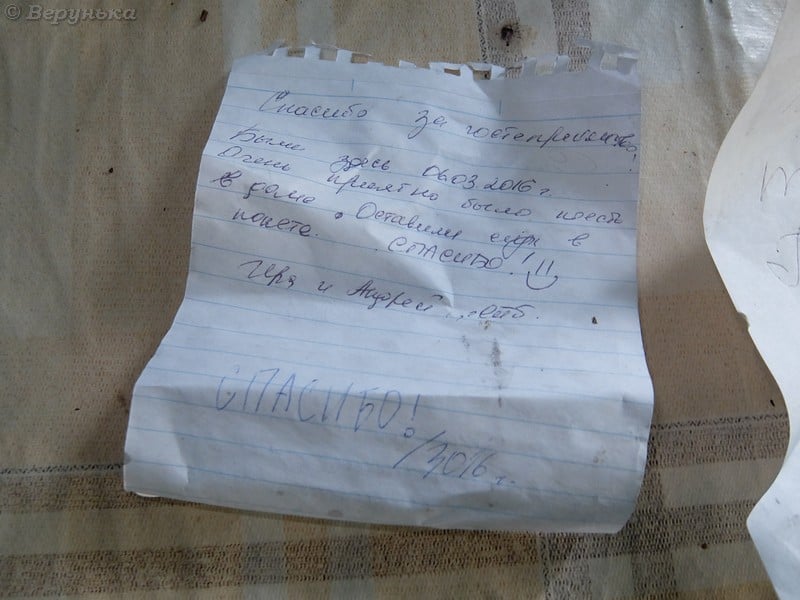 © Верунька
Спасибо за гостеприимство!
Были здесь 06.03.2016 г.
Очень приятно было поесть
в доме. Оставили еду в
пакете. СПАСИБО!
и Андрей
СПАСИБО!
/2016 г.